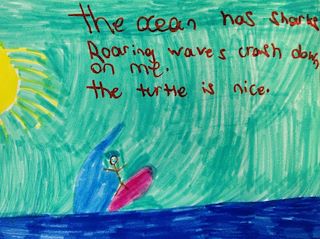 the ocean has sharks
Roaring waves crash down
on me.
the turtle is nice.